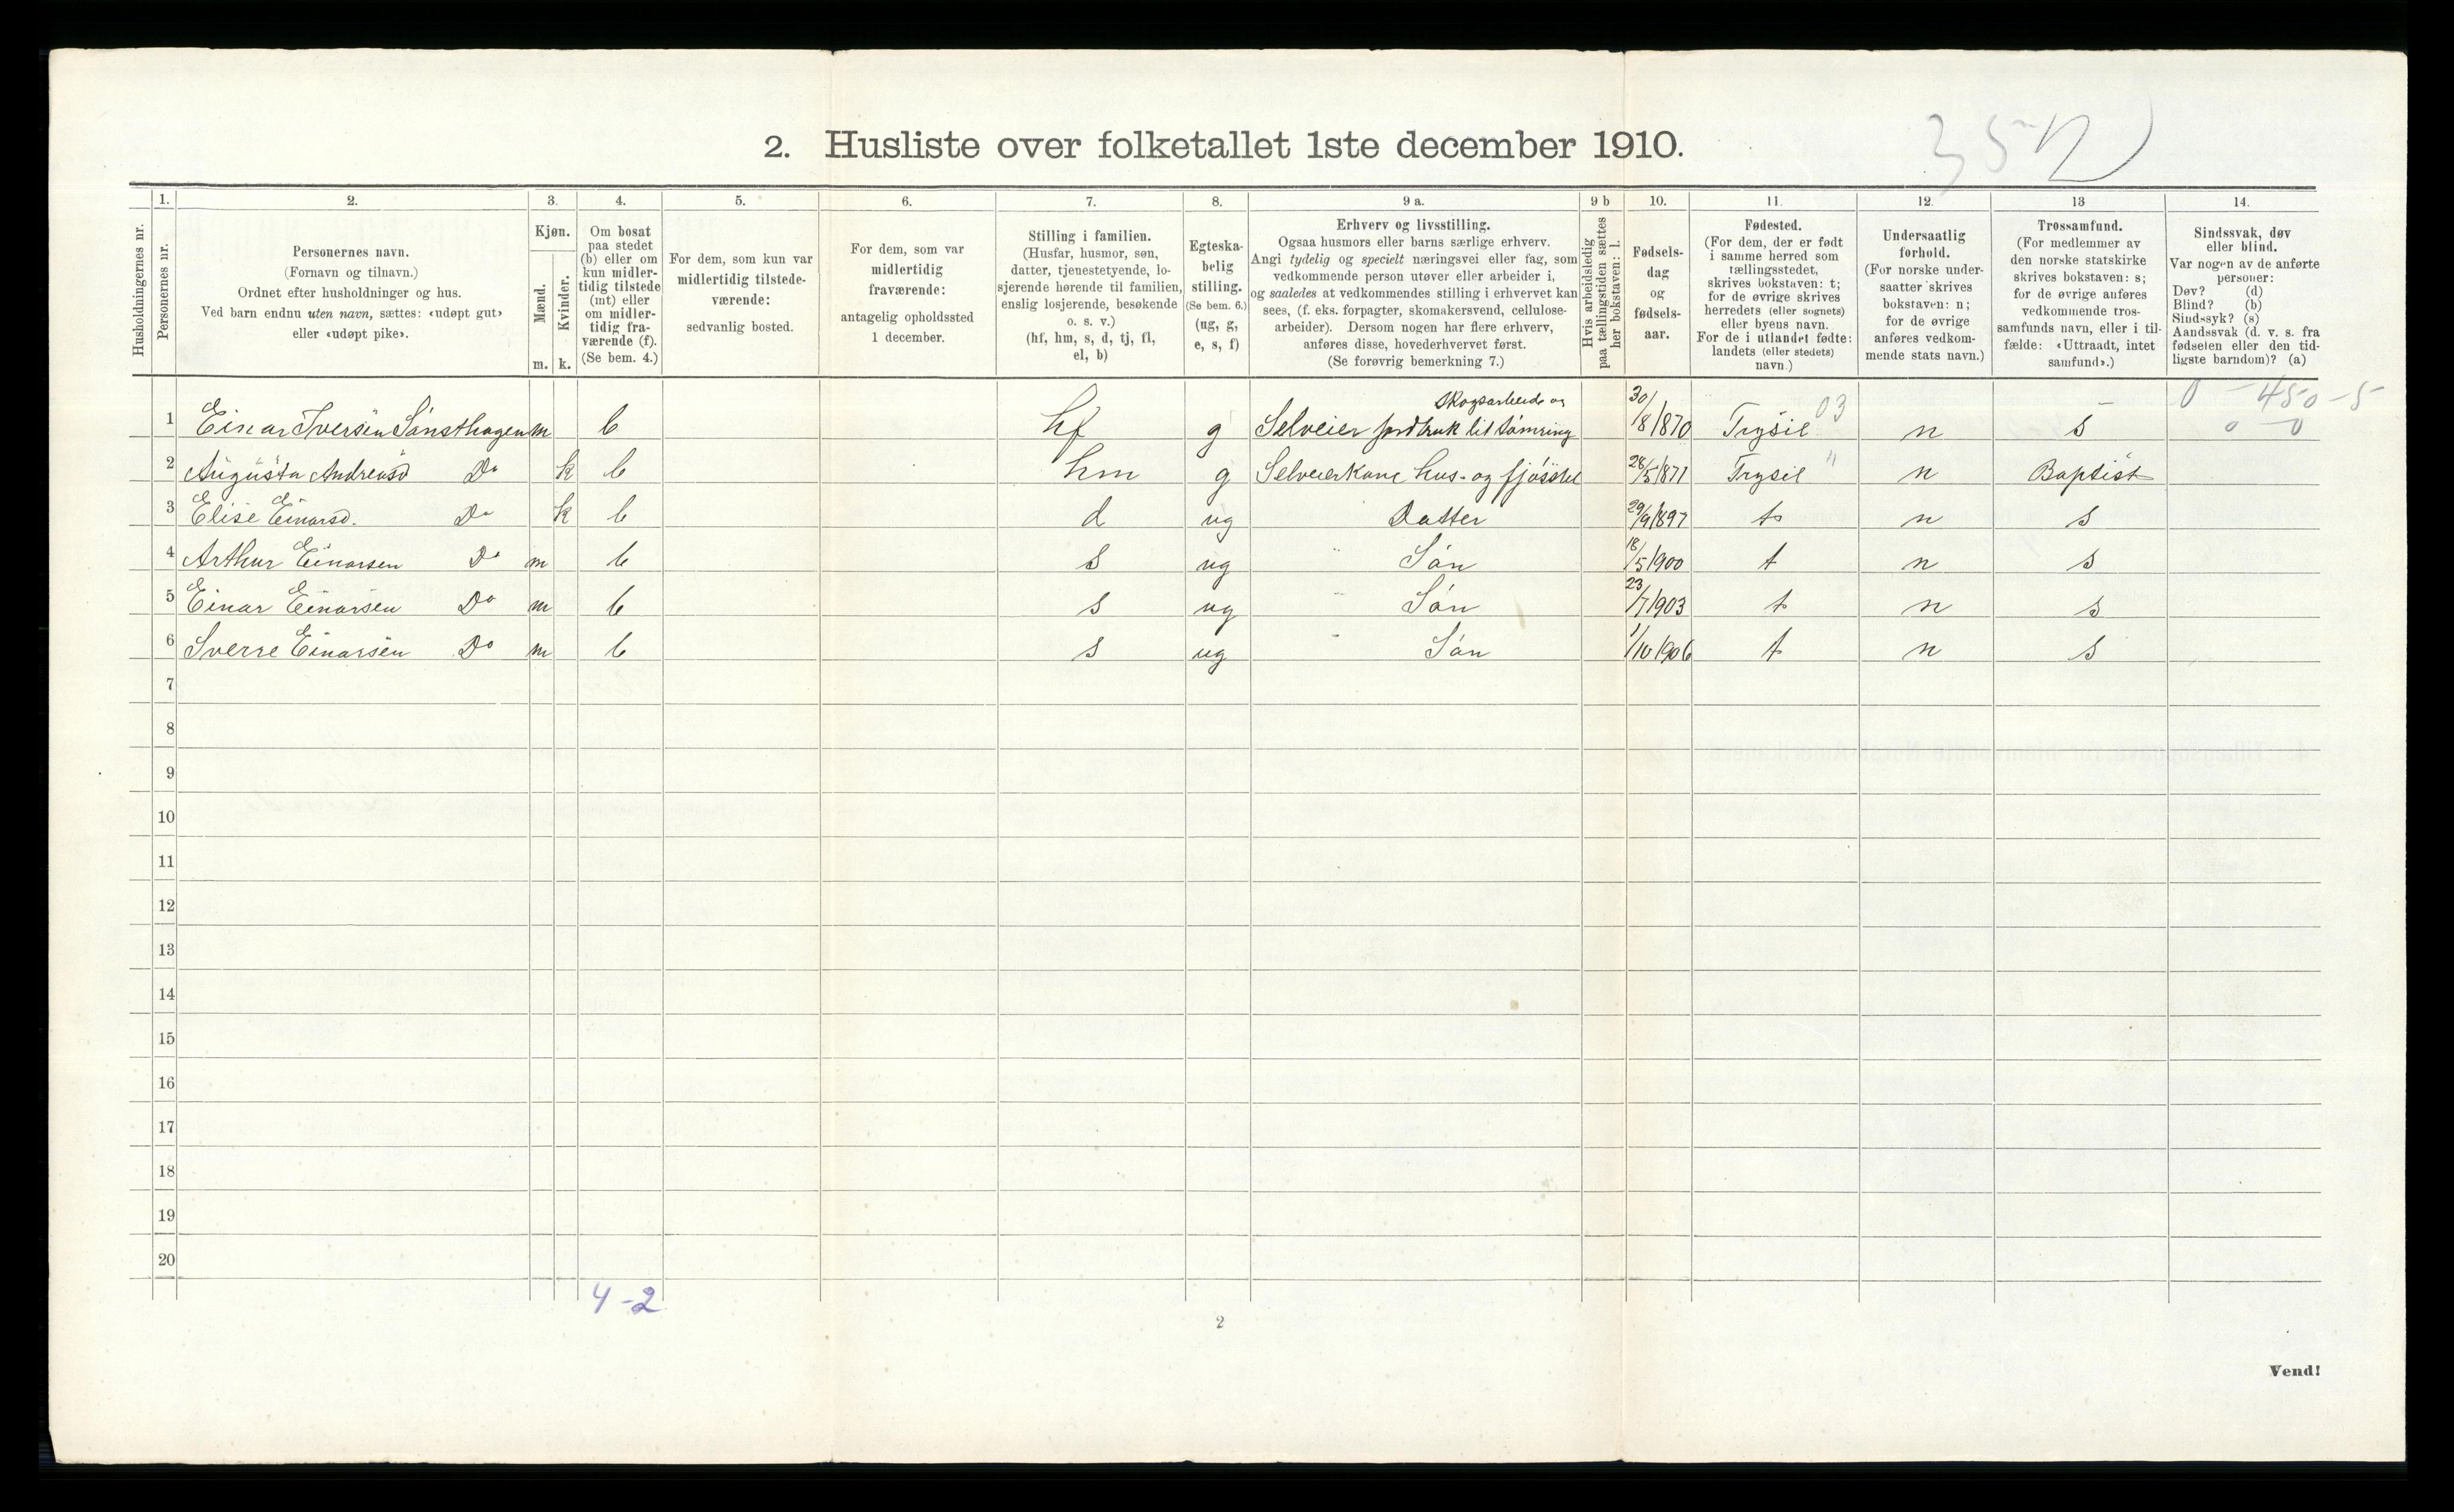 2. Husliste over folketallet 1ste december 1910.
1. 2. 3. 4. 5. 6. 7. 8. 9 a. 9 b 10. 11. 12. 13 14.
Husholdningernes nr.
Personernes nr.
Personernes navn.
(Fornavn og tilnavn.)
Ordnet efter husholdninger og hus.
Ved barn endnu uten navn, sættes: «udøpt gut»
eller «udøpt pike».
Kjøn.
Mænd.
Kvinder.
m. k.
Om bosat
paa stedet
(b) eller om
kun midler-
tidig tilstede
(mt) eller
om midler-
tidig fra-
værende (f).
(Se bem. 4.)
For dem, som kun var
midlertidig tilstede-
værende:
sedvanlig bosted.
For dem, som var
midlertidig
fraværende:
antagelig opholdssted
1 december.
Stilling i familien.
(Husfar, husmor, søn,
datter, tjenestetyende, lo-
sjerende hørende til familien,
enslig losjerende, besøkende
o. s. v.)
(hf, hm, s, d, tj, fl,
el, b)
Egteska-
belig
stilling.
(Se bem. 6.)
(ug, g,
e, s, f)
Erhverv og livsstilling.
Ogsaa husmors eller barns særlige erhverv.
Angi tydelig og specielt næringsvei eller fag, som
vedkommende person utøver eller arbeider i,
og saaledes at vedkommendes stilling i erhvervet kan
sees, (f. eks. forpagter, skomakersvend, cellulose-
arbeider). Dersom nogen har flere erhverv,
anføres disse, hovederhvervet først.
(Se forøvrig bemerkning 7.)
Hvis arbeidsledig
paa tællingstiden sættes
her bokstaven: l.
Fødsels-
dag
og
fødsels-
aar.
Fødested.
(For dem, der er født
i samme herred som
tællingsstedet,
skrives bokstaven: t;
for de øvrige skrives
herredets (eller sognets)
eller byens navn.
For de i utlandet fødte:
landets (eller stedets)
navn.)
Undersaatlig
forhold.
(For norske under-
saatter skrives
bokstaven: n;
for de øvrige
anføres vedkom-
mende stats navn.)
Trossamfund.
(For medlemmer av
den norske statskirke
skrives bokstaven: s;
for de øvrige anføres
vedkommende tros-
samfunds navn, eller i til-
fælde: «Uttraadt, intet
samfund».)
Sindssvak, døv
eller blind.
Var nogen av de anførte
personer:
Døv? (d)
Blind? (b)
Sindssyk? (s)
Aandssvak (d. v. s. fra
fødselen eller den tid-
ligste barndom)? (a)
Skogsarbeide og 03 0 - 450-5
1 Einar Iversen Sønsthagen m b hf g Selveier jordbruk lit tømring 30/8/870 Trysil n s 0 0
2 Augusta Andreasd Do k b hm g Selveierkone hus- og fjøsstel 28/5/871 Trysil " n Baptist
3 Elise Einarsd. Do k b d ug Datter 29/9/897 t n s
4 Arthur Einarsen Do m b s ug Søn 18/5/900 t n s
5 Einar Einarsen Do m b s ug Søn 23/7/903 t n s
6 Sverre Einarsen Do m b s ug Søn 1/10/906 t n s
7
8
9
10
11
12
13
14
15
16
17
18
19
20
4-2
2
Vend!